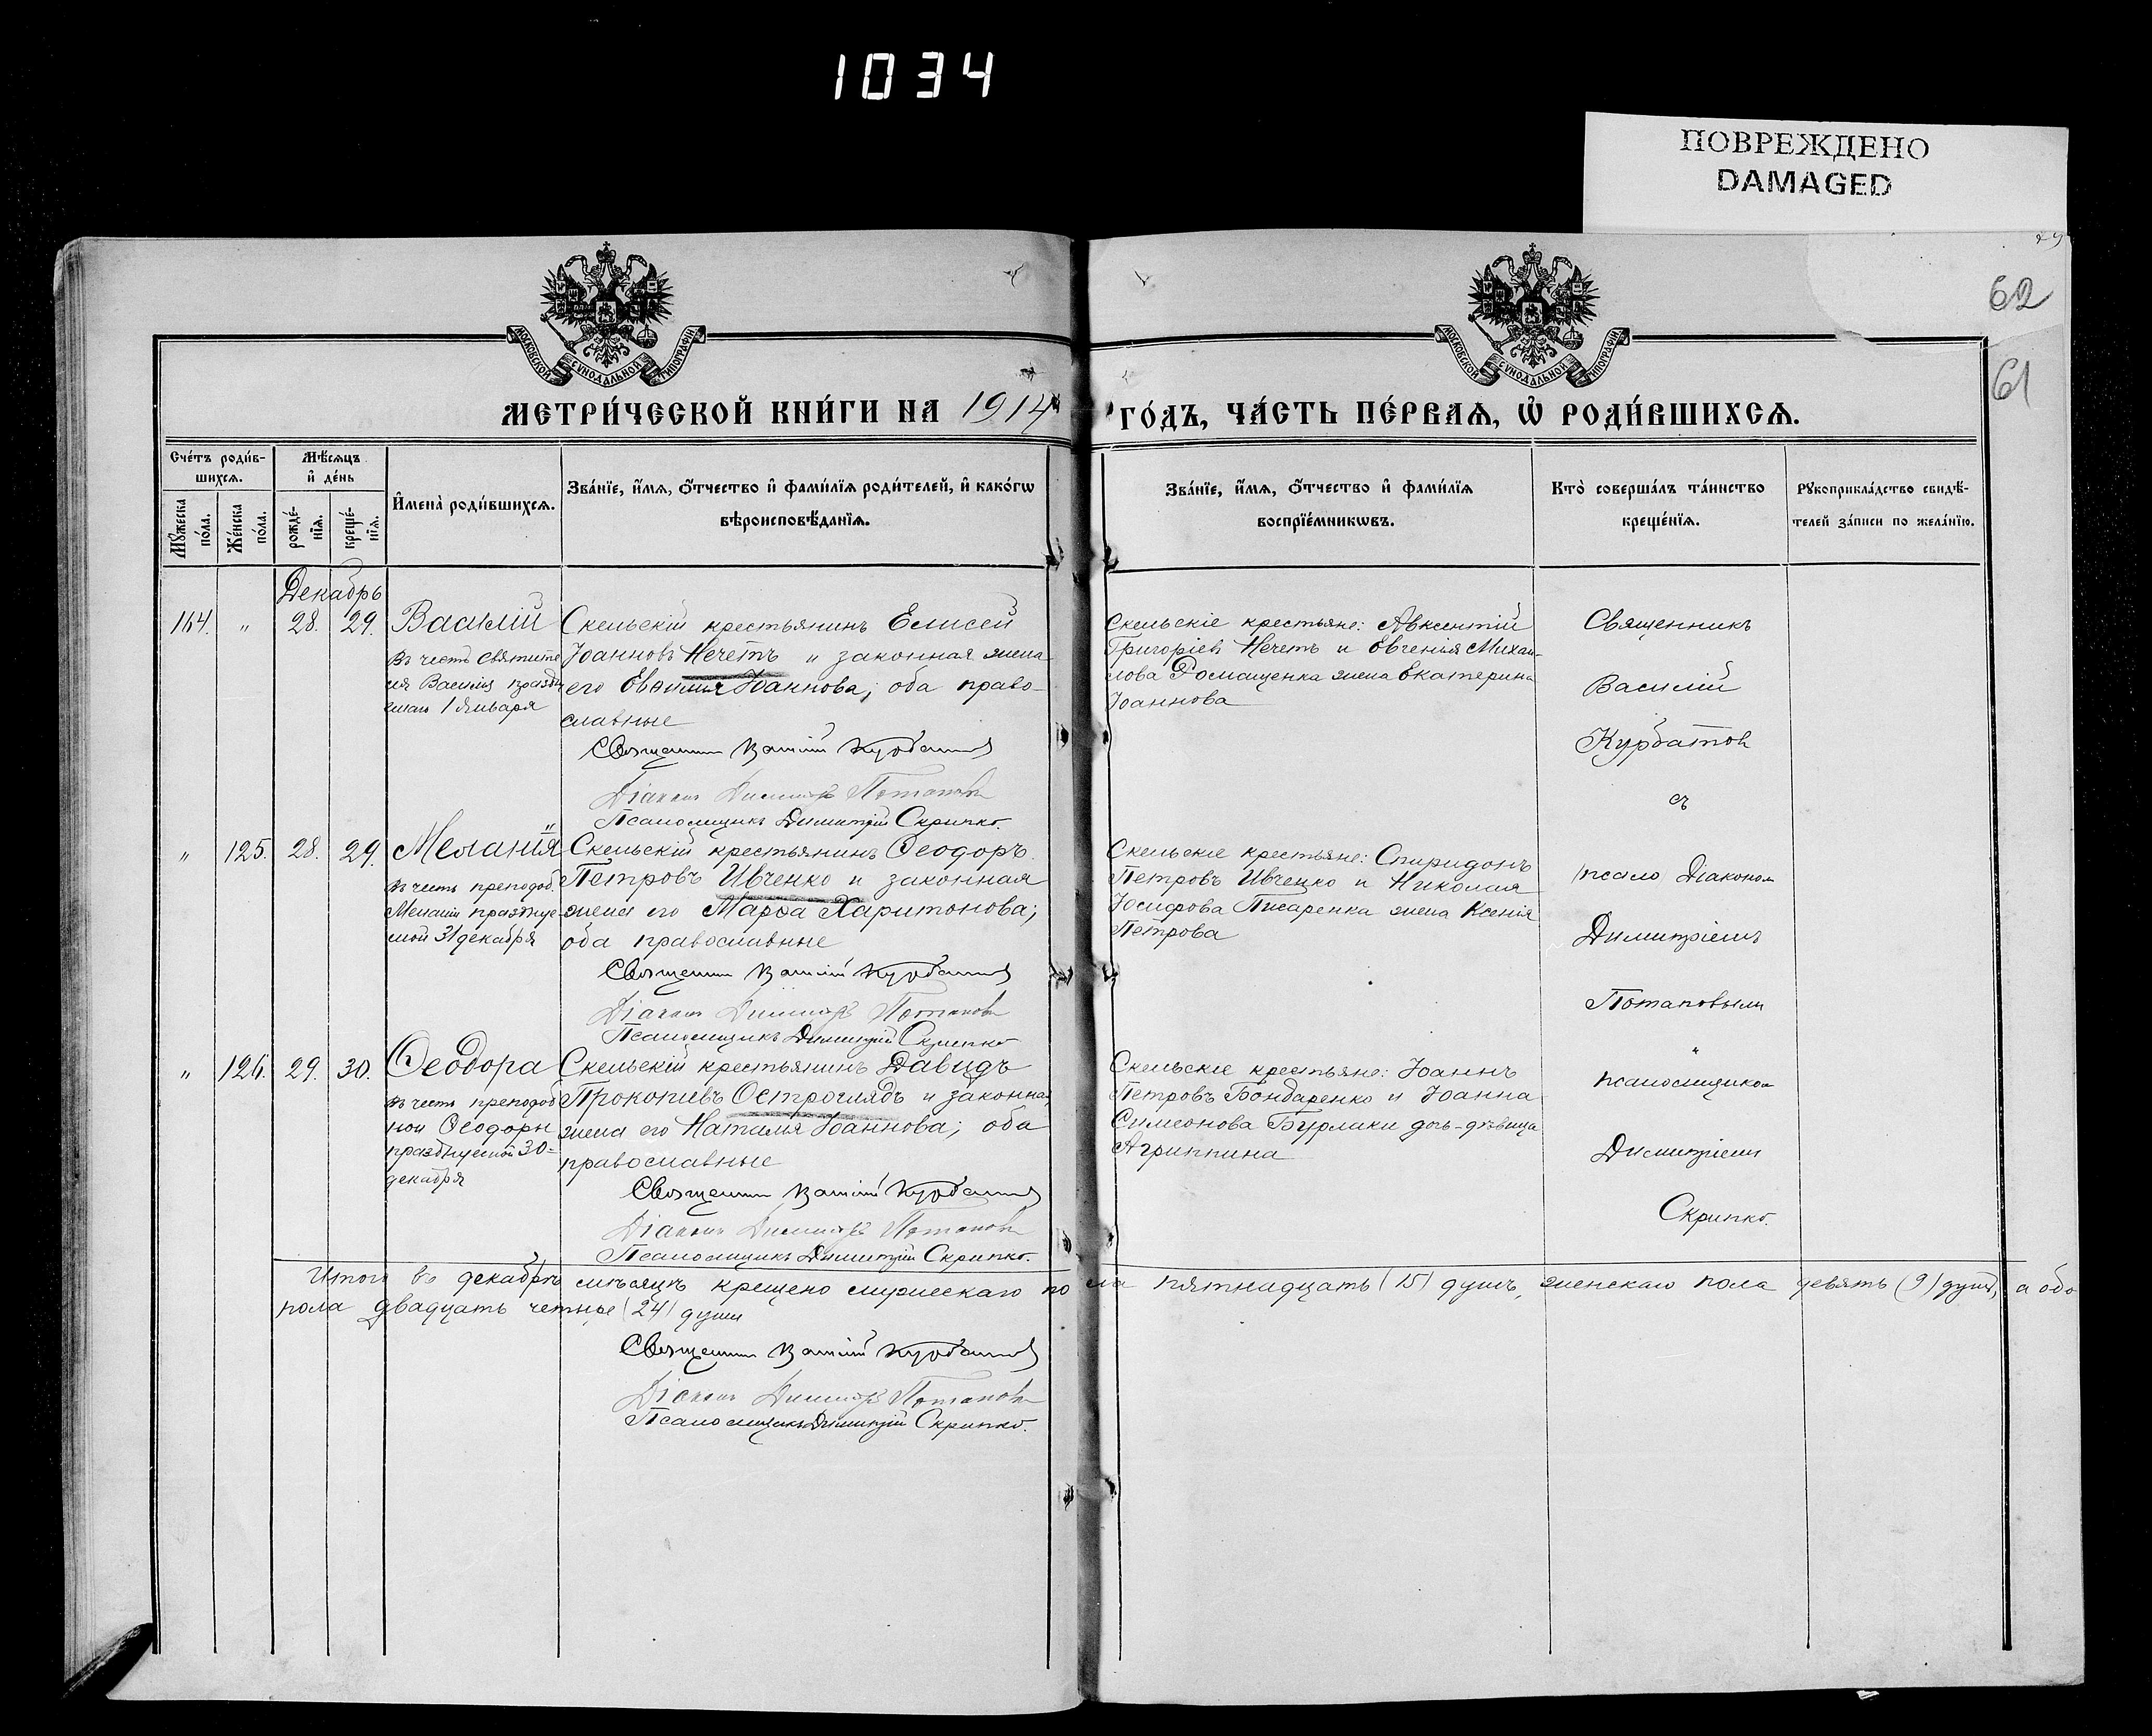 1034
ПОВРЕЖДЕНО
DAMAGED
29
62
61
МОСКОВСКОЙ СѴНОДАЛЬНОЙ ТИПОГРАФІИ
МОСКОВСКОЙ СѴНОДАЛЬНОЙ ТИПОГРАФІИ
МЕТРИ́ЧЕСКОЙ КНИ́ГИ НА 1914
ГО́ДЪ, ЧА́СТЬ ПЕ́РВАѦ, Ѽ РОДИ́ВШИХСѦ.
Сче́тъ роди́в-
шихсѧ.
Мѣ́сѧцъ
и҆ де́нь
Мꙋ́жеска
по́ла.
Же́нска
по́ла.
рожде́-
нїѧ.
креще́-
нїѧ.
И҆мена̀ роди́вшихсѧ.
Зва́нїе, и҆́мѧ, ѻ҆́тчество и҆ фами́лїѧ роди́телей, и҆ како́гѡ
вѣроисповѣ́данїѧ.
Зва́нїе, и҆́мѧ, ѻ҆́тчество и҆ фами́лїѧ
воспрїе́мникѡвъ.
Кто̀ соверша́лъ та́инство
креще́нїѧ.
Рꙋкоприкла́дство свидѣ́-
телей за́писи по жела́нїю.
Декабрь
164. " 28. 29. Василій
Въ честь святите
ля Василія праздн
1 января
Скельскій крестьянинъ Елисей
Іоанновъ Нечетъ " законная жена
его Евфимія Іоаннова; оба право-
славные
Священникъ Василій Курбатовъ
Діаконъ Димитрій Потаповъ
Псаломщикъ Димитрій Скрипко.
Скельскіе крестьяне: Авксентій
Григоріевъ Нечетъ и Евгенія Михаи-
лова Ромащенка жена Екатерина
Іоаннова
Священникъ
Василій
Курбатовъ
съ
" 125. 28. 29. Меланія
въ честь преподоб.
Меланіи праздную
мой 31 декабря
Скельскій крестьянинъ Ѳеодоръ
Петровъ Ивченко и законная
жена его Марѳа Харитонова;
оба православные
Священникъ Василій Курбатовъ
Діаконъ Димитрій Потаповъ
Псаломщикъ Димитрій Скрипко
Скельскіе крестьяне: Спиридонъ
Петровъ Ивченко и Николая
Іосифова Писаренка жена Ксенія
Петрова
псало Діакономъ
Димитріемъ
Потаповымъ
"
" 126. 29. 30. Ѳеодора
въ честь преподоб
ной Ѳеодоры
празднуемой 30-
декабря
Скельскій крестьянинъ Давидъ
Прокопіевъ Остроглядъ и законная
жена его Наталія Іоаннова; оба
православные
Священникъ Василій Курбатовъ
Діаконъ Димитрій Потаповъ
Псаломщикъ Димитрій Скрипко.
Скельскіе крестьяне: Іоаннъ
Петровъ Бондаренко и Іоанна
Симеонова Бурлаки дочь-дѣвица
Агриппина
псаломщикомъ
Димитріемъ
Скрипко.
Итого въ декабрѣ мѣсяцѣ крещено мужескаго пола пятнадцать (15) душъ, женскаго пола девять (9) душъ, а обо
пола двадцать четыре (24) души
Священникъ Василій Курбатовъ
Діаконъ Димитрій Потаповъ
Псаломщикъ Димитрій Скрипко.